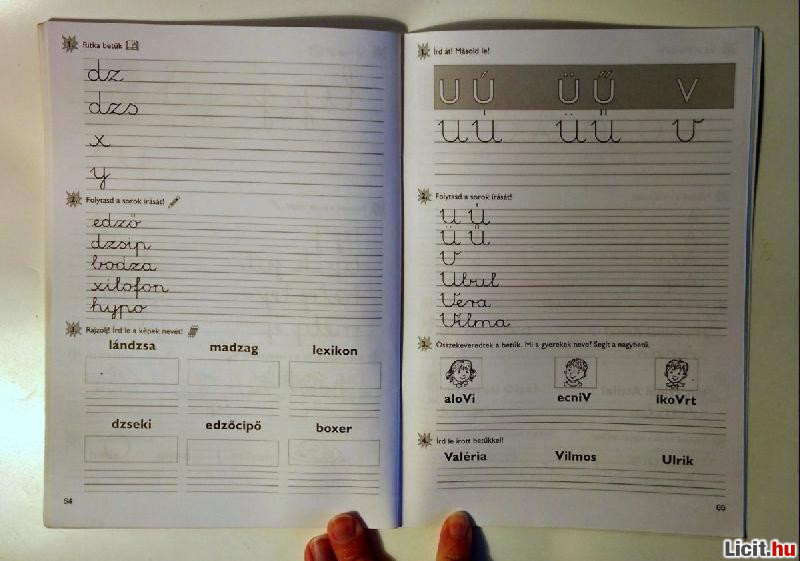 1. Ritka betűk
dz
dzs
x
y
2. Folytasd a sorok írását!
edző
dzsip
bodza
xilofon
hypo
3. Rajzolj! Írd le a képek nevét!
lándzsa madzag lexikon
dzseki edzőcipő boxer
64
1. Írd át! Másold le!
U Ú Ü Ű V
U Ú Ü Ű V
2. Folytasd a sorok írását!
U Ú
Ü Ű
V
Ubul
Vera
Vilma
3. Összekeveredtek a betűk. Mi a gyerekek neve? Segít a nagybetű.
aloVi ecniV ikoVrt
4. Írd le írott betűkkel!
Valéria Vilmos Ulrik
65
Licit.hu